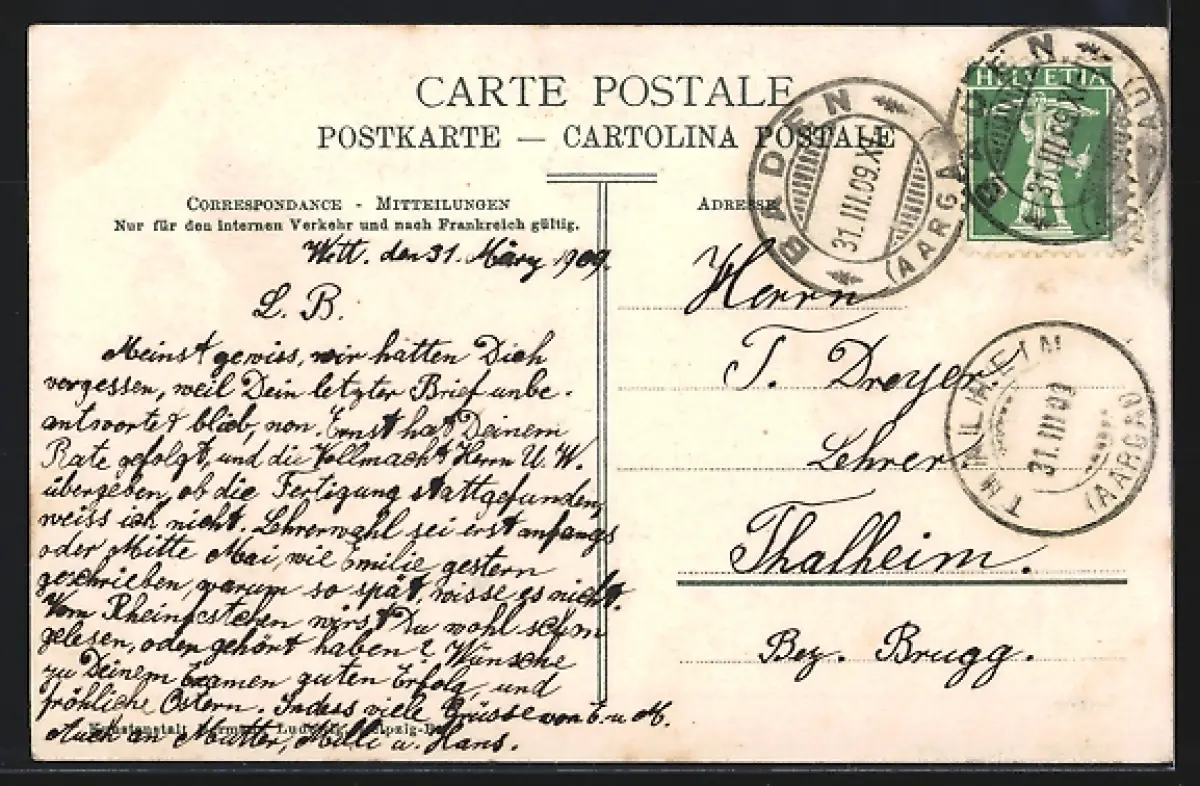 CARTE POSTALE
POSTKARTE — CARTOLINA POSTALE
CORRESPONDANCE - MITTEILUNGEN
Nur für den internen Verkehr und nach Frankreich gültig.
ADRESSE
HELVETIA
BADEN
31.III.09.XI
(AARGAU)
BADEN
31.III.09.XI
THALHEIM
31.III.09
(AARGAU)
den 31. März 1909.
L. B.
Meinst gewiss, wir hätten Dich
vergessen, weil Dein letzter Brief unbe-
antwortet blieb, non. Ernst hat Deinem
Rate gefolgt, und die Vollmacht Herrn U. W.
übergeben, ob die Fertigung stattgefunden,
weiss ich nicht. Lehrerwahl sei erst anfangs
oder Mitte Mai, wie Emilie gestern
geschrieben, warum so spät, wisse es nicht.
Vom wirst Du wohl schon
gelesen, oder gehört haben? Wünsche
zu Deinem Examen guten Erfolg, und
fröhliche Ostern. Indess viele Grüsse von E. u. M.
Auch an Mutter, Milli u. Hans.
Kunstanstalt Ludwig, Leipzig
Herrn
T. Dreyer.
Lehrer
Thalheim.
Bez. Brugg.